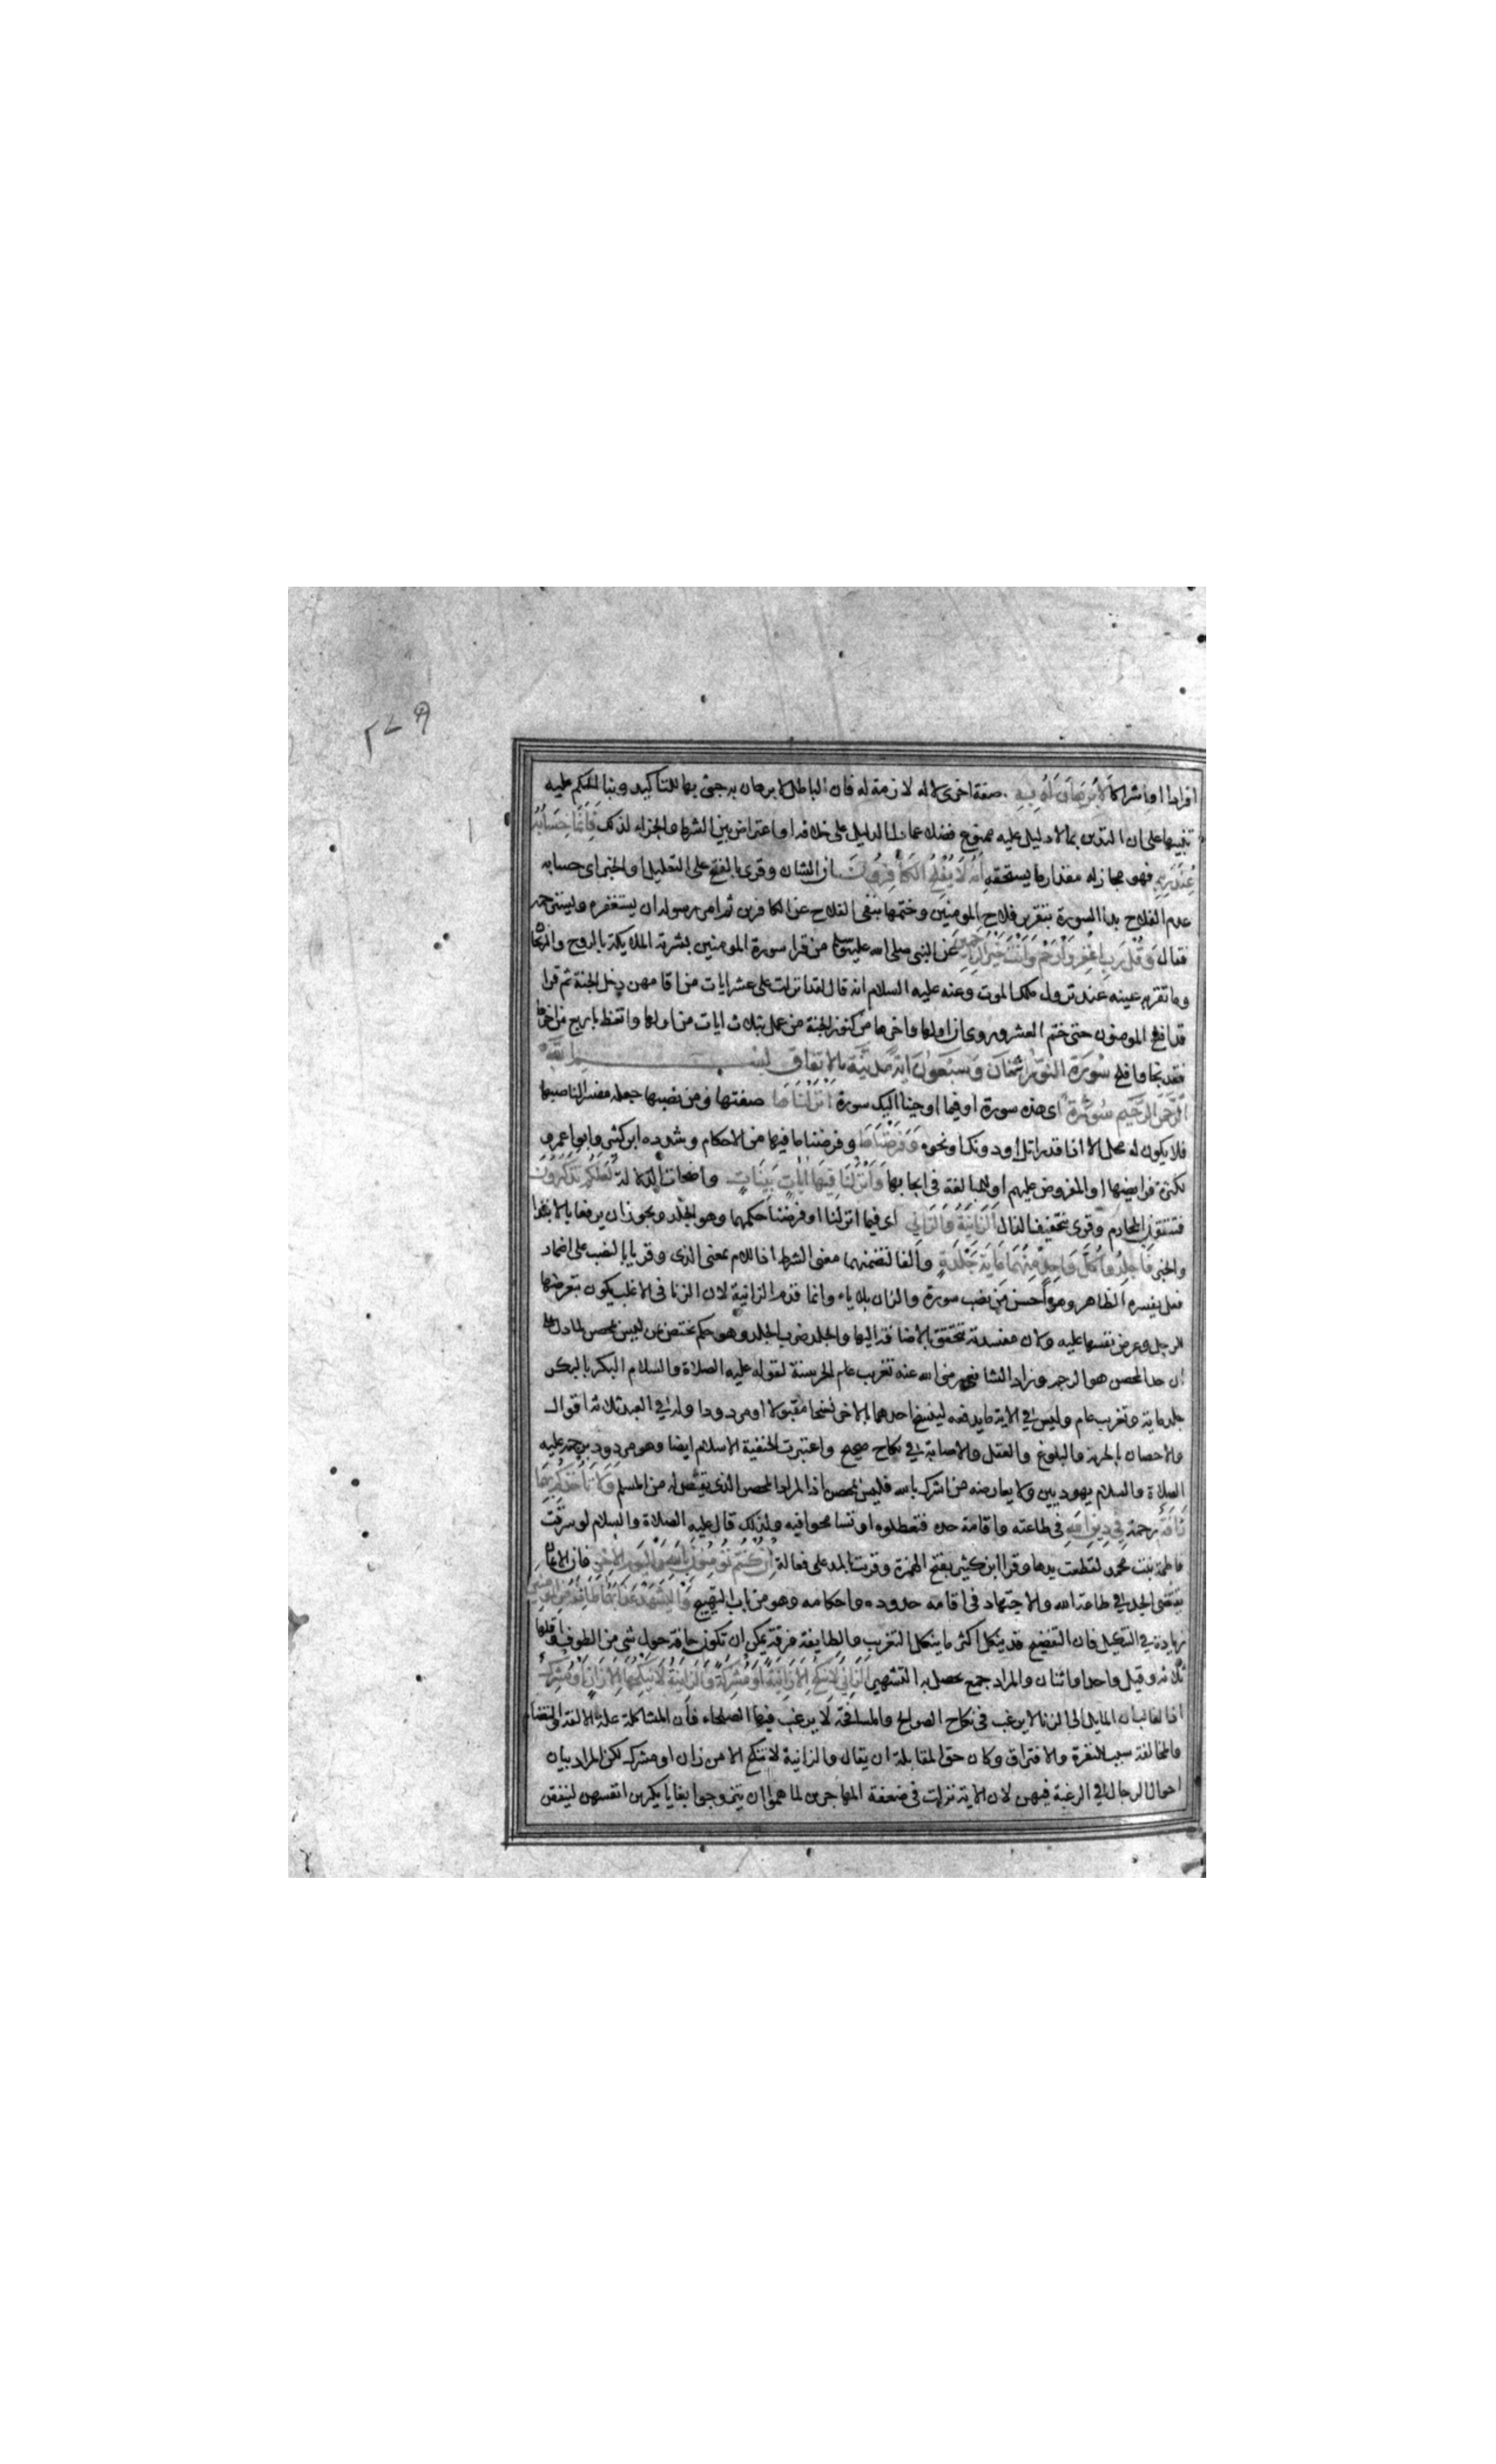 ٢٧٩
افرادا او اشراكا لا برهان له به صفة اخرى لاله لازمة له فان الباطل لا برهان به جئ بها للتاكيد وبنا الحكم عليه
تنبيها على ان التدين بما لا دليل عليه ممنوع فضلا عما دل الدليل على خلافه او اعتراض بين الشرط والجزاء لذلك فانما حسابه
عند ربه فهو مجاز له مقدار ما يستحقه انه لا يفلح الكافرون ان الشان وقرى بالفتح على التعليل او الخبر اى حسابه
عدم الفلاح بدا السورة بتقرير فلاح المومنين وختمها بنفى الفلاح عن الكافرين ثم امر رسوله ان يستغفره ويسترحمه
فقال وقل رب اغفر وارحم وانت خير الراحمين عن النبى صلى الله عليه وسلم من قرا سورة المومنين بشرته الملايكة بالروح والريحان
وما تقر به عينه عند نزول ملك الموت وعنه عليه السلام انه قال لقد انزلت على عشر ايات من اقامهن دخل الجنة ثم قرا
قد افلح المومنون حتى ختم العشر وروى ان اولها واخرها من كنوز الجنة من عمل بثلاث ايات من اولها واتعظ باربع من اخرها
فقد نجا وافلح سورة النور اثنان وسبعون اية مدنية بالاتفاق بسم الله
الرحمن الرحيم سورة اى هذه سورة او فيما اوحينا اليك سورة انزلناها صفتها ومن نصبها جعله مفسرا لناصبها
فلا يكون له محل الا اذا قدر اتل او دونك او نحوه وفرضناها وفرضنا ما فيها من الاحكام وشدده ابن كثير وابو عمرو
لكثرة فرايضها او المفروض عليهم او للمبالغة فى ايجابها وانزلنا فيها ايات بينات واضحات الدلالة لعلكم تذكرون
فتتقون المحارم وقرى بتخفيف الذال الزانية والزاني اى فيما انزلنا او فرضنا حكمهما وهو الجلد ويجوز ان يرفعا بالابتدا
والخبر فاجلدوا كل واحد منهما ماية جلدة والفا لتضمنهما معنى الشرط اذ اللام بمعنى الذى وقريا بالنصب على اضمار
فعل يفسره الظاهر وهو احسن من نصب سورة والزان بلا ياء وانما قدم الزانية لان الزنا فى الاغلب يكون بتعرضها
للرجل وعرض نفسها عليه ولان مفسدته تتحقق بالاضافة اليها والجلد ضرب الجلد وهو حكم يختص بمن ليس بمحصن لما دل على
ان حد المحصن هو الرجم وزاد الشافعي رضى الله عنه تغريب عام الحر سنة لقوله عليه الصلاة والسلام البكر بالبكر
جلد ماية وتغريب عام وليس في الاية ما يدفعه لينسخ احدهما الاخر نسخا مقبولا او مردودا وله في العبد ثلاثة اقوال
والاحصان بالحرية والبلوغ والعقل والاصابة في نكاح صحيح واعتبرت الحنفية الاسلام ايضا وهو مردود برجمه عليه
الصلاة والسلام يهوديين ولا يعارضه من اشرك بالله فليس بمحصن اذ المراد المحصن الذى يقتص له من المسلم ولا تاخذكم بهما
رافة رحمة في دين الله فى طاعته واقامة حده فتعطلوه او تسامحوا فيه ولذلك قال عليه الصلاة والسلام لو سرقت
فاطمة بنت محمد لقطعت يدها وقرا ابن كثير بفتح الهمزة وقريت بالمد على فعالة ان كنتم تومنون بالله واليوم الاخر فان الايمان
يقتضى الجد في طاعة الله والاجتهاد فى اقامة حدوده واحكامه وهو من باب التهييج وليشهد عذابهما طايفة من المومنين
زيادة في التنكيل فان التفضيح قد ينكل اكثر ما ينكل التغريب والطايفة فرقة يمكن ان تكون حافة حول شى من الطوف واقلها
ثلاثة وقيل واحد او اثنان والمراد جمع يحصل به التشهير الزاني لا ينكح الا زانية او مشركة والزانية لا ينكحها الا زان او مشرك
اذ الغالب ان المايل الى الزنا لا يرغب فى نكاح الصوالح والمسافحة لا يرغب فيها الصلحاء فان المشاكلة علة الالفة والتضام
والمخالفة سبب للنفرة والافتراق وكان حق المقابلة ان يقال والزانية لا تنكح الا من زان او مشرك لكن المراد بيان
احوال الرجال في الرغبة فيهن لان الاية نزلت فى ضعفة المهاجرين لما هموا ان يتزوجوا بغايا يكرين انفسهن لينفقن